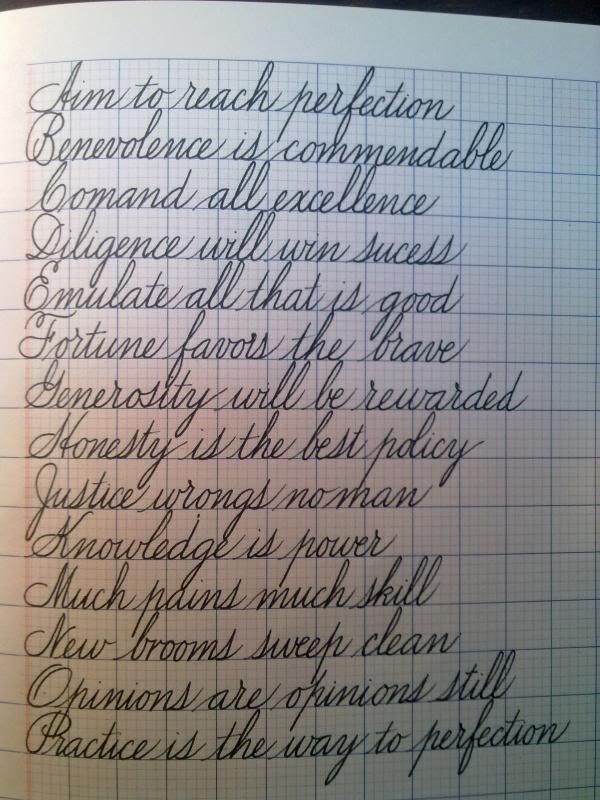 Aim to reach perfection
Benevolence is commendable
Comand all excellence
Diligence will win sucess
Emulate all that is good
Fortune favors the brave
Generosity will be rewarded
Honesty is the best policy
Justice wrongs no man
Knowledge is power
Much pains much skill
New brooms sweep clean
Opinions are opinions still
Practice is the way to perfection